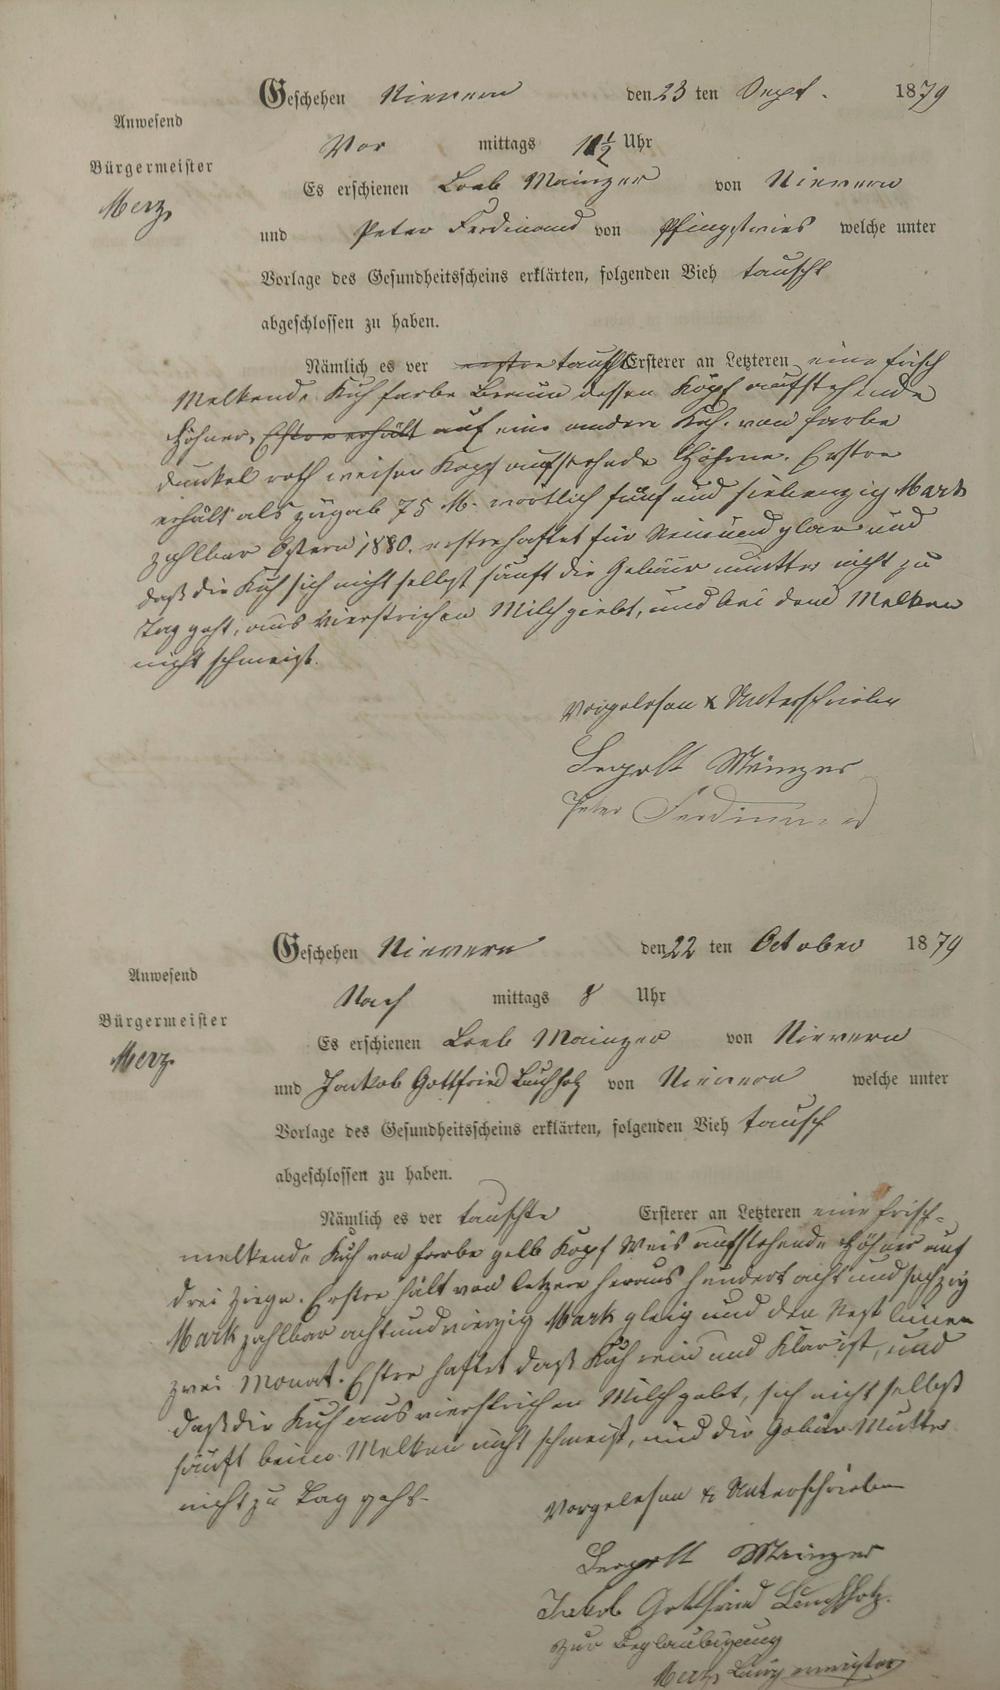 Geschehen Nievern den 23 ten Sept. 1879
Anwesend
Vor mittags 11½ Uhr
Bürgermeister
Es erschienen Loeb Mainzer von Nievern
Merz
und Peter Ferdinand von Pfingstwies welche unter
Vorlage des Gesundheitsscheins erklärten, folgenden Vieh tauscht
abgeschlossen zu haben.
Nämlich es ver tauscht Ersterer an Letzteren eine frisch
Melkende Kuh farbe Braun dessen Kopf aufstehende
Höhner, Erstere erhält auf eine andere Kuh. von farbe
dunkel roth weisen Kopf aufstehnde Höhrne. Erstre
erhält als zugab 75 M. wörtlich fünf und siebenzig Mark
zahlbar Ostern 1880. erstre haftet für Rein und glar und
daß die Kuh sich nicht selbst säuft die Gebäur mutter nicht zu
Tag geht, aus vierstrichen Milch giebt, und bei dem Melken
nicht schmeist.
Vorgelesen & Unterschrieben
Leopolt Mainzer
Peter Ferdinand
Geschehen Nievern den 22 ten October 1879
Anwesend
Nach mittags 8 Uhr
Bürgermeister
Es erschienen Loeb Mainzer von Nievern
Merz
und Jackob Gottfried Buchholz von Nievern welche unter
Vorlage des Gesundheitsscheins erklärten, folgenden Vieh tausch
abgeschlossen zu haben.
Nämlich es ver tauschte Ersterer an Letzteren eine frisch-
melkende Kuh von farbe gelb Kopf Weis aufstehende Höhner auf
drei Ziege. Erstre hält von letzere heraus hundert acht und sechzig
Mark zahlbar achtundvierzig Mark gleig und den Rest binnen
zwei Monat. Erstre haftet daß Kuh rein und Klar ist, und
daß die Kuh aus vierstrichen Milch gebt, sich nicht selbst
säuft beim Melken nicht schmeist, und die Gebär Mutter
nicht zu Tag geht.
Vorgelesen & Unterschrieben
Leopolt Mainzer
Jakob Gottfried Buchholz.
Zur Beglaubigung
Merz, Bürgermeister